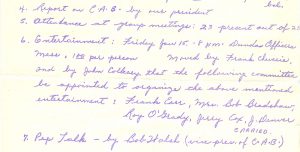 bob.
4. Report on C.A.B. - by vice president
5. Attendance at group meetings: 23 present out of 25
6. Entertainment: Friday Jan 15 - 8 P.M. Dundas Officers
Mess, 1.25 per person Moved by Frank
and by John that the following committee
be appointed to organize the above mentioned
entertainment: Frank Cass, Mrs. Bob Bradshaw,
Roy O'Grady, Jerry Cox, J. Denver
CARRIED
7. Pep Talk - by Bob Walsh (vice pres. of C.A.B.)